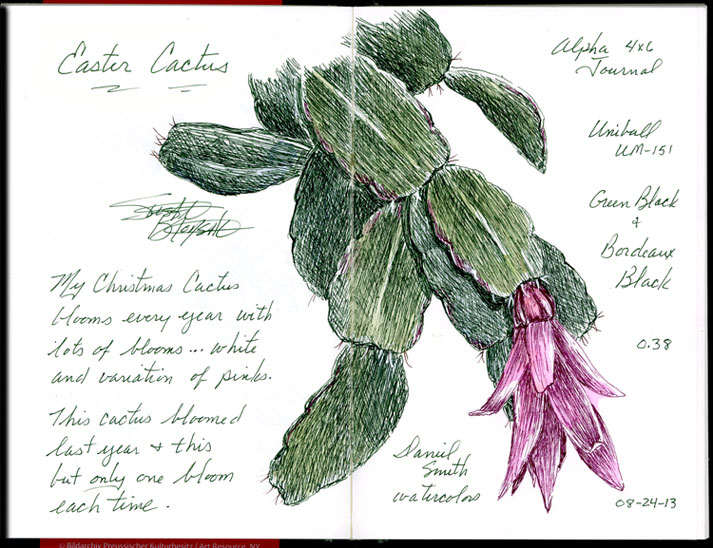 Easter Cactus
My Christmas Cactus
blooms every year with
lots of blooms... white
and variation of pinks.
This cactus bloomed
last year & this
but only one bloom
each time.
Alpha 4x6
Journal
Uniball
UM-151
Green Black
&
Bordeaux
Black
0.38
Daniel
Smith
watercolors
08-24-13
© Bildarchiv Preussischer Kulturbesitz / Art Resource, NY